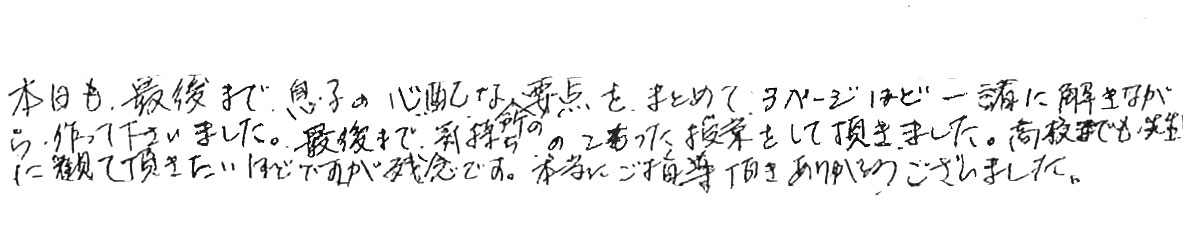 本日も、最後まで、息子の心配な要点を、まとめて、3ページほど一緒に解きなが
ら、作って下さいました。最後まで、気持ちのこもった授業をして頂きました。高校までも、先生
に観て頂きたいほどですが残念です。本当にご指導頂きありがとうございました。